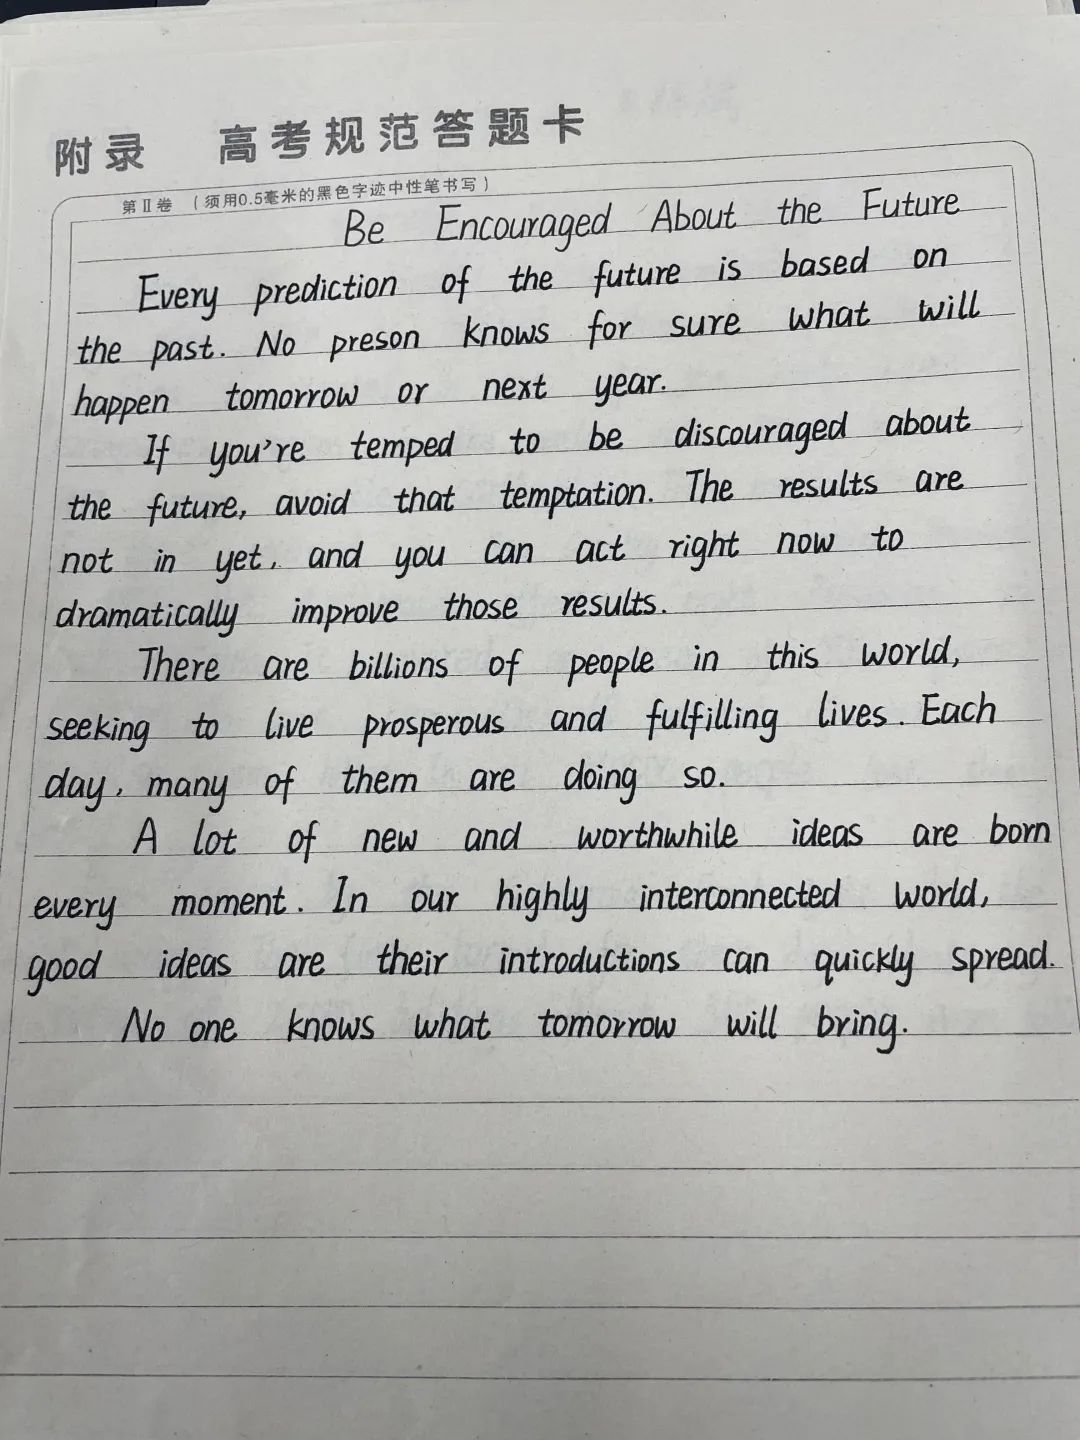 附录 高考规范答题卡
第Ⅱ卷 (须用0.5毫米的黑色字迹中性笔书写)
Be Encouraged About the Future
Every prediction of the future is based on
the past. No preson knows for sure what will
happen tomorrow or next year.
If you're temped to be discouraged about
the future, avoid that temptation. The results are
not in yet, and you can act right now to
dramatically improve those results.
There are billions of people in this world,
seeking to live prosperous and fulfilling lives. Each
day, many of them are doing so.
A lot of new and worthwhile ideas are born
every moment. In our highly interconnected world,
good ideas are their introductions can quickly spread.
No one knows what tomorrow will bring.